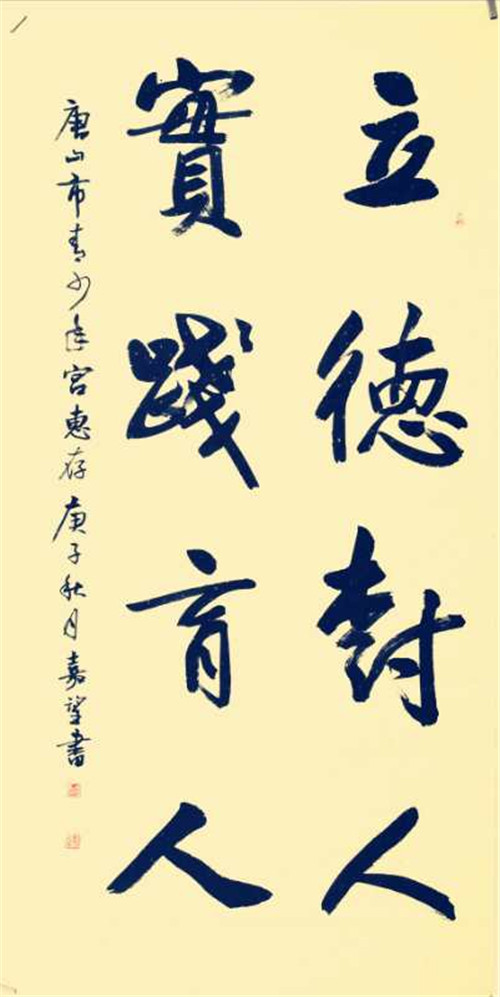 立德樹人
實踐育人
唐山市青少年宮惠存 庚子秋月嘉望書